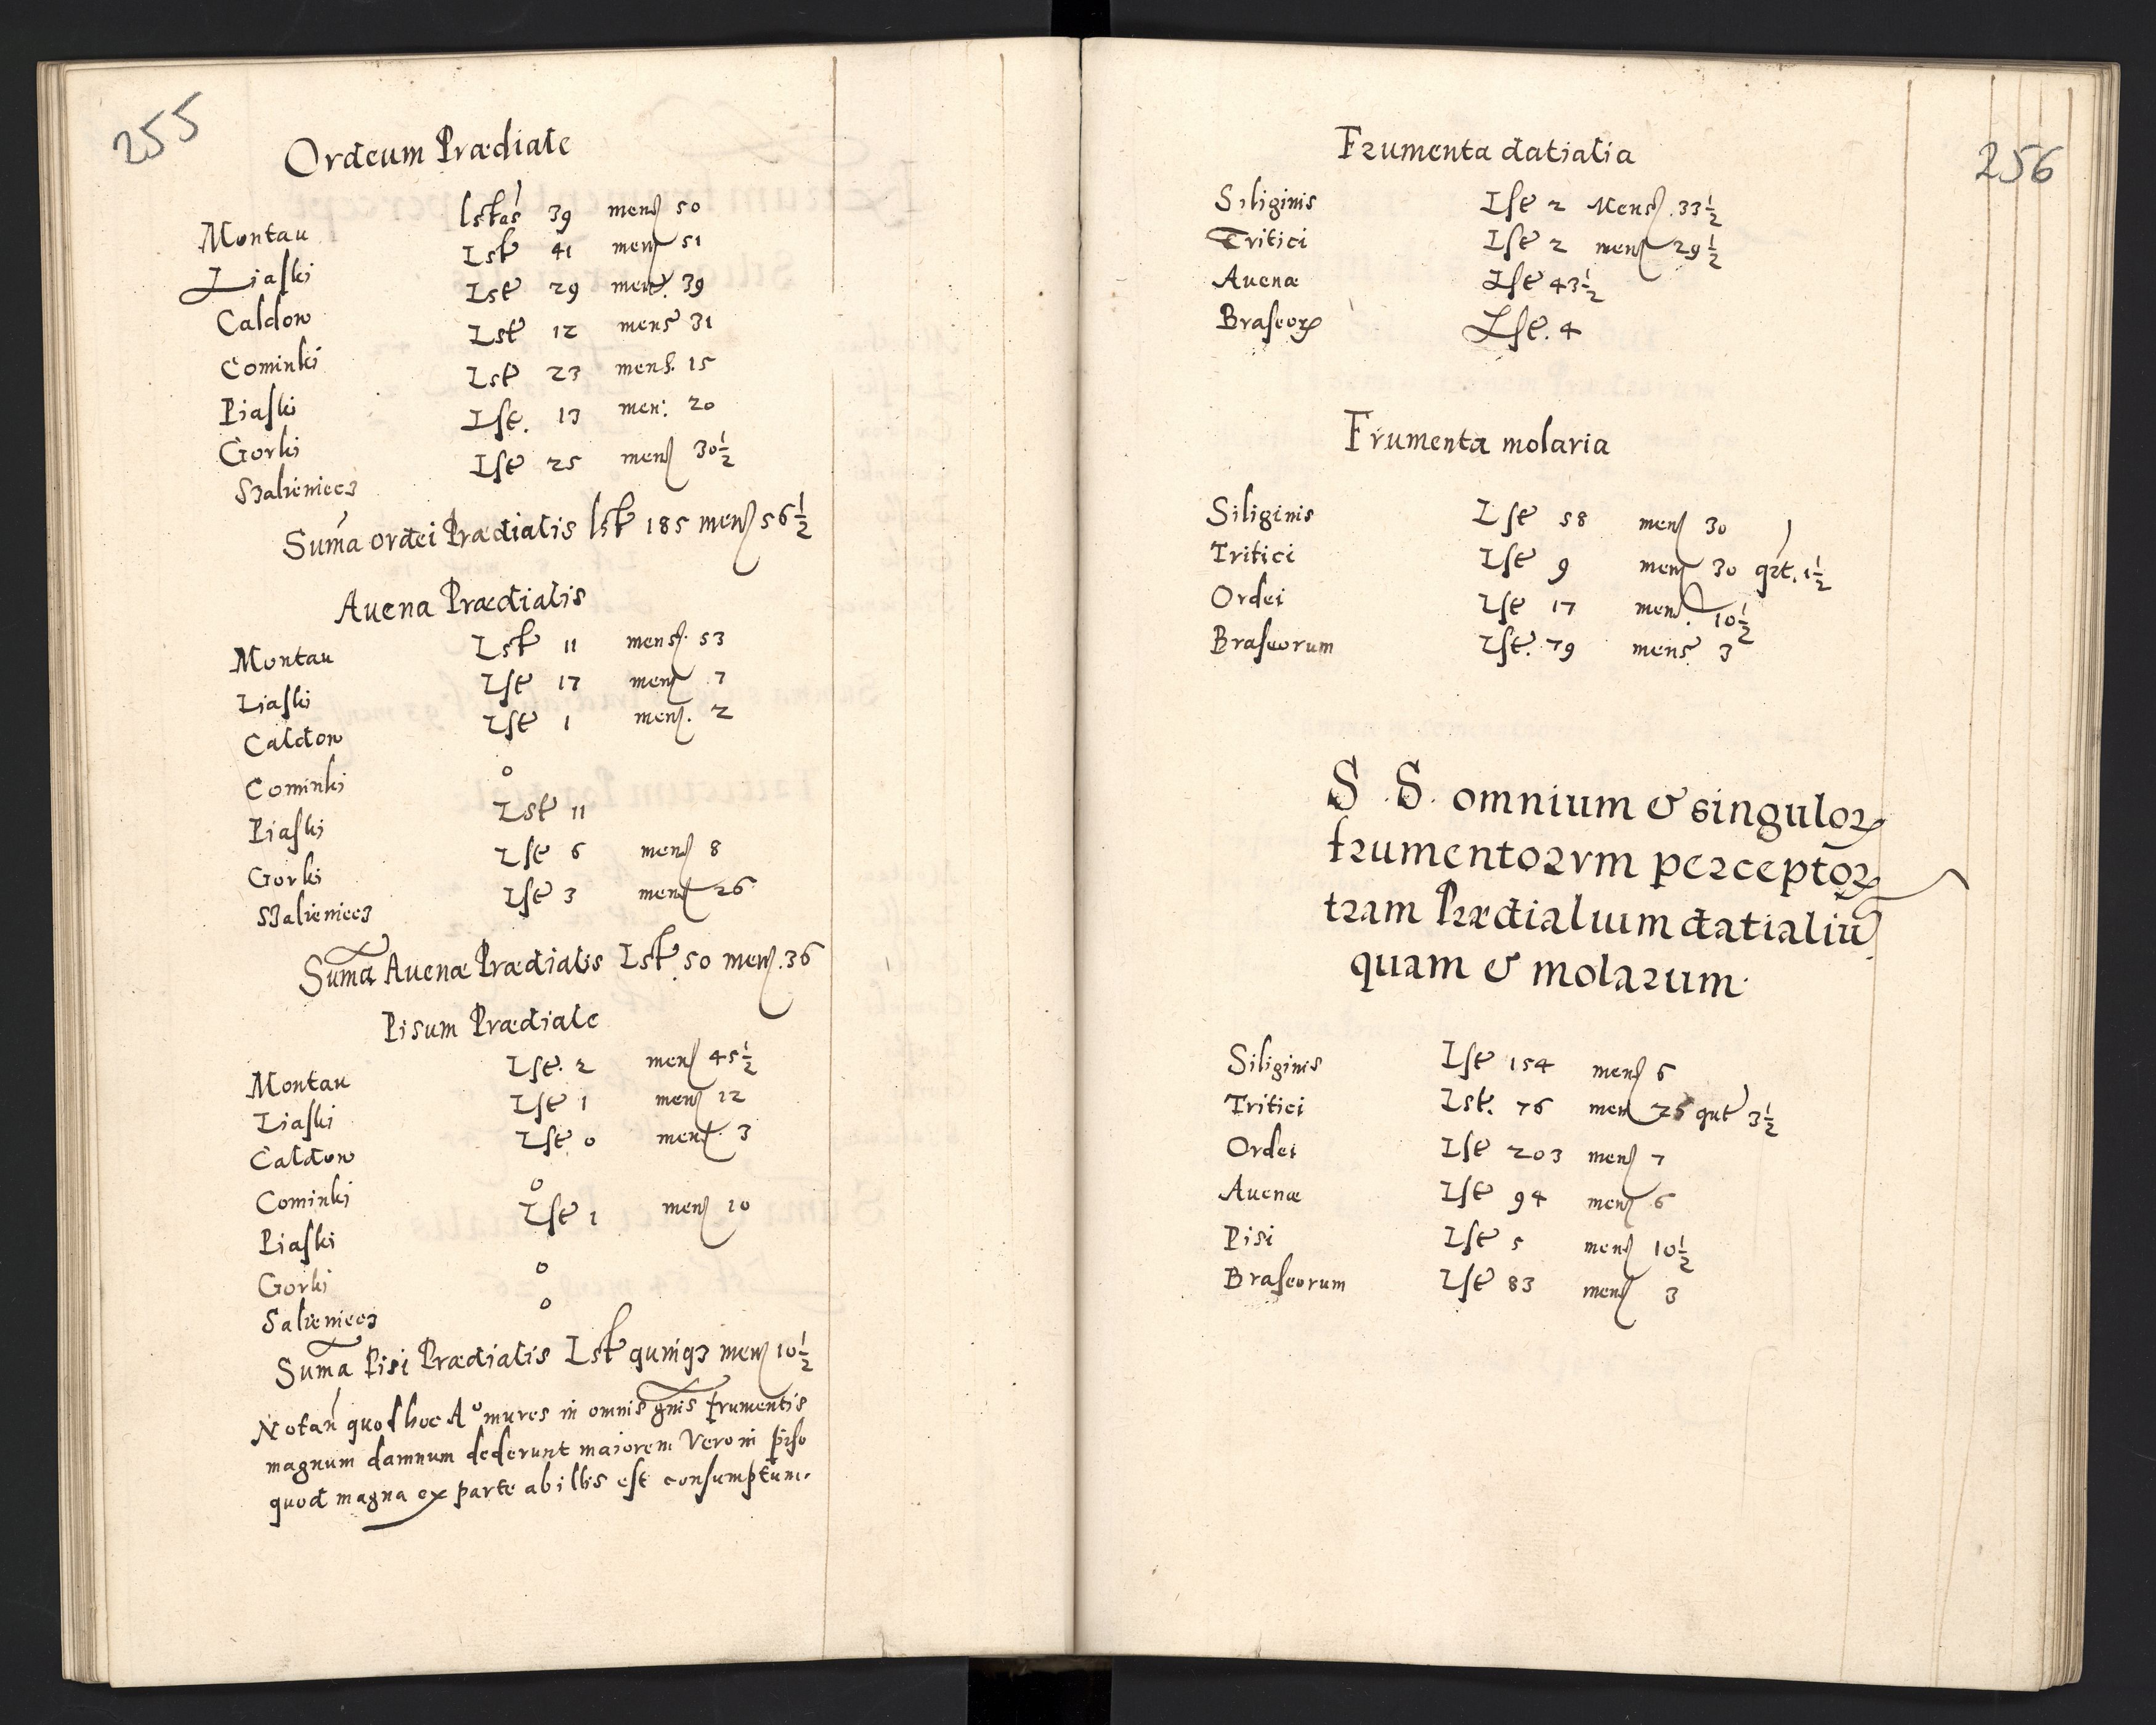 255
Ordeum Prædiale
Montau lstas 39 mens 50
Liaski Lst 41 mens 51
Caldow Lst 29 mens. 39
Cominki Lst 12 mens 31
Piaski Lst 23 mens. 15
Gorki Lst. 13 men: 20
Szalieniecz Lst 25 mens 30½
Suma ordei Prædialis lst 185 mens 56½
Auena Prædialis
Montau Lst 11 mens. 53
Liaski Lst 17 mens 7
Caldow Lst 1 mens. 2
Cominki 0
Piaski Lst 11
Gorki Lst 6 mens 8
Szalieniecz Lst 3 mens 26
Suma Auenæ Prædialis Lst 50 mens. 36
Pisum Prædiale
Montau Lst. 2 mens 45½
Liaski Lst 1 mens 12
Caldow Lst 0 mens. 3
Cominki 0
Piaski Lst 1 mens 10
Gorki 0
Salieniecz 0
Suma Pisi Prædialis Lst quinqz mens 10½
Notan quod hoc A° mures in omnis gnis frumentis
magnum damnum dederunt maiorem vero in piso
quod magna ex parte ab illis est consumptum.
256
Frumenta datialia
Siliginis Lst 2 Mens. 33½
Tritici Lst 2 mens 29½
Auenæ Lst 43½
Braseoꝝ Lst. 4
Frumenta molaria
Siliginis Lst 58 mens 30
Tritici Lst 9 mens 30 qrt. 1½
Ordei Lst 17 mens. 10½
Braseorum Lst. 79 mens 3
S. S. omnium & singuloꝝ
frumentorvm perceptoꝝ
tram Prædialium datialiū
quam & molarum.
Siliginis Lst 154 mens 6
Tritici Lst. 76 mens 25 qut 3½
Ordei Lst 203 mens 7
Auenæ Lst 94 mens 6
Pisi Lst 5 mens 10½
Braseorum Lst 83 mens 3